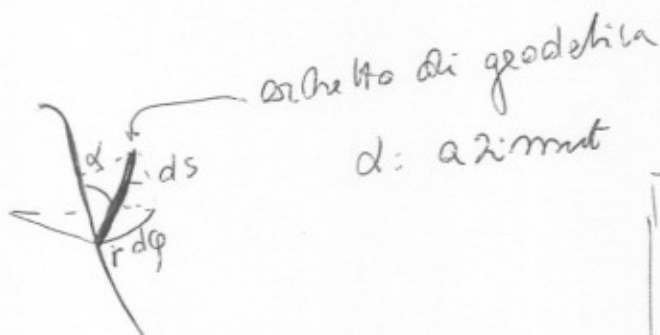 archetto di geodetica
α: azimut
α
ds
r dφ